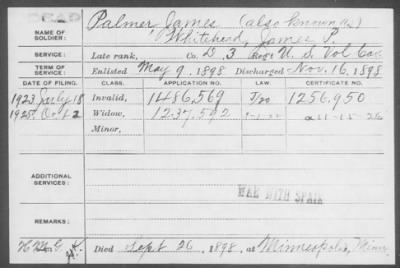 NAME OF SOLDIER: Palmer, James (also known as)
Whitehead, James P.
SERVICE: Late rank, Co. D, 3 Reg't U. S. Vol Cav.
TERM OF SERVICE: Enlisted May 9, 1898 Discharged Nov. 16, 1898
DATE OF FILING. CLASS. APPLICATION NO. CERTIFICATE NO.
1923 July 18 Invalid, 1486,569 1256,950
1925, Oct 2 Widow, 1237,592 a 11-15-26
Minor,
ADDITIONAL SERVICES:
WAR WITH SPAIN
REMARKS:
Died Sept 26, 1898, at Minneapolis, Minn